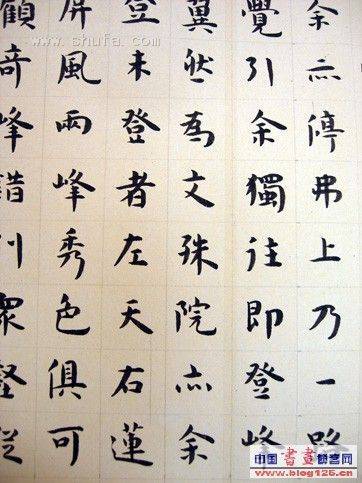 余亦停弗上乃一路
覺引余獨往即登峰
翼然為文殊院亦余
登未登者左天右蓮
屏風兩峰秀色俱可
顧奇峰錯列眾壑縱
www.shufa.com
中国書畫
www.blog125.cn